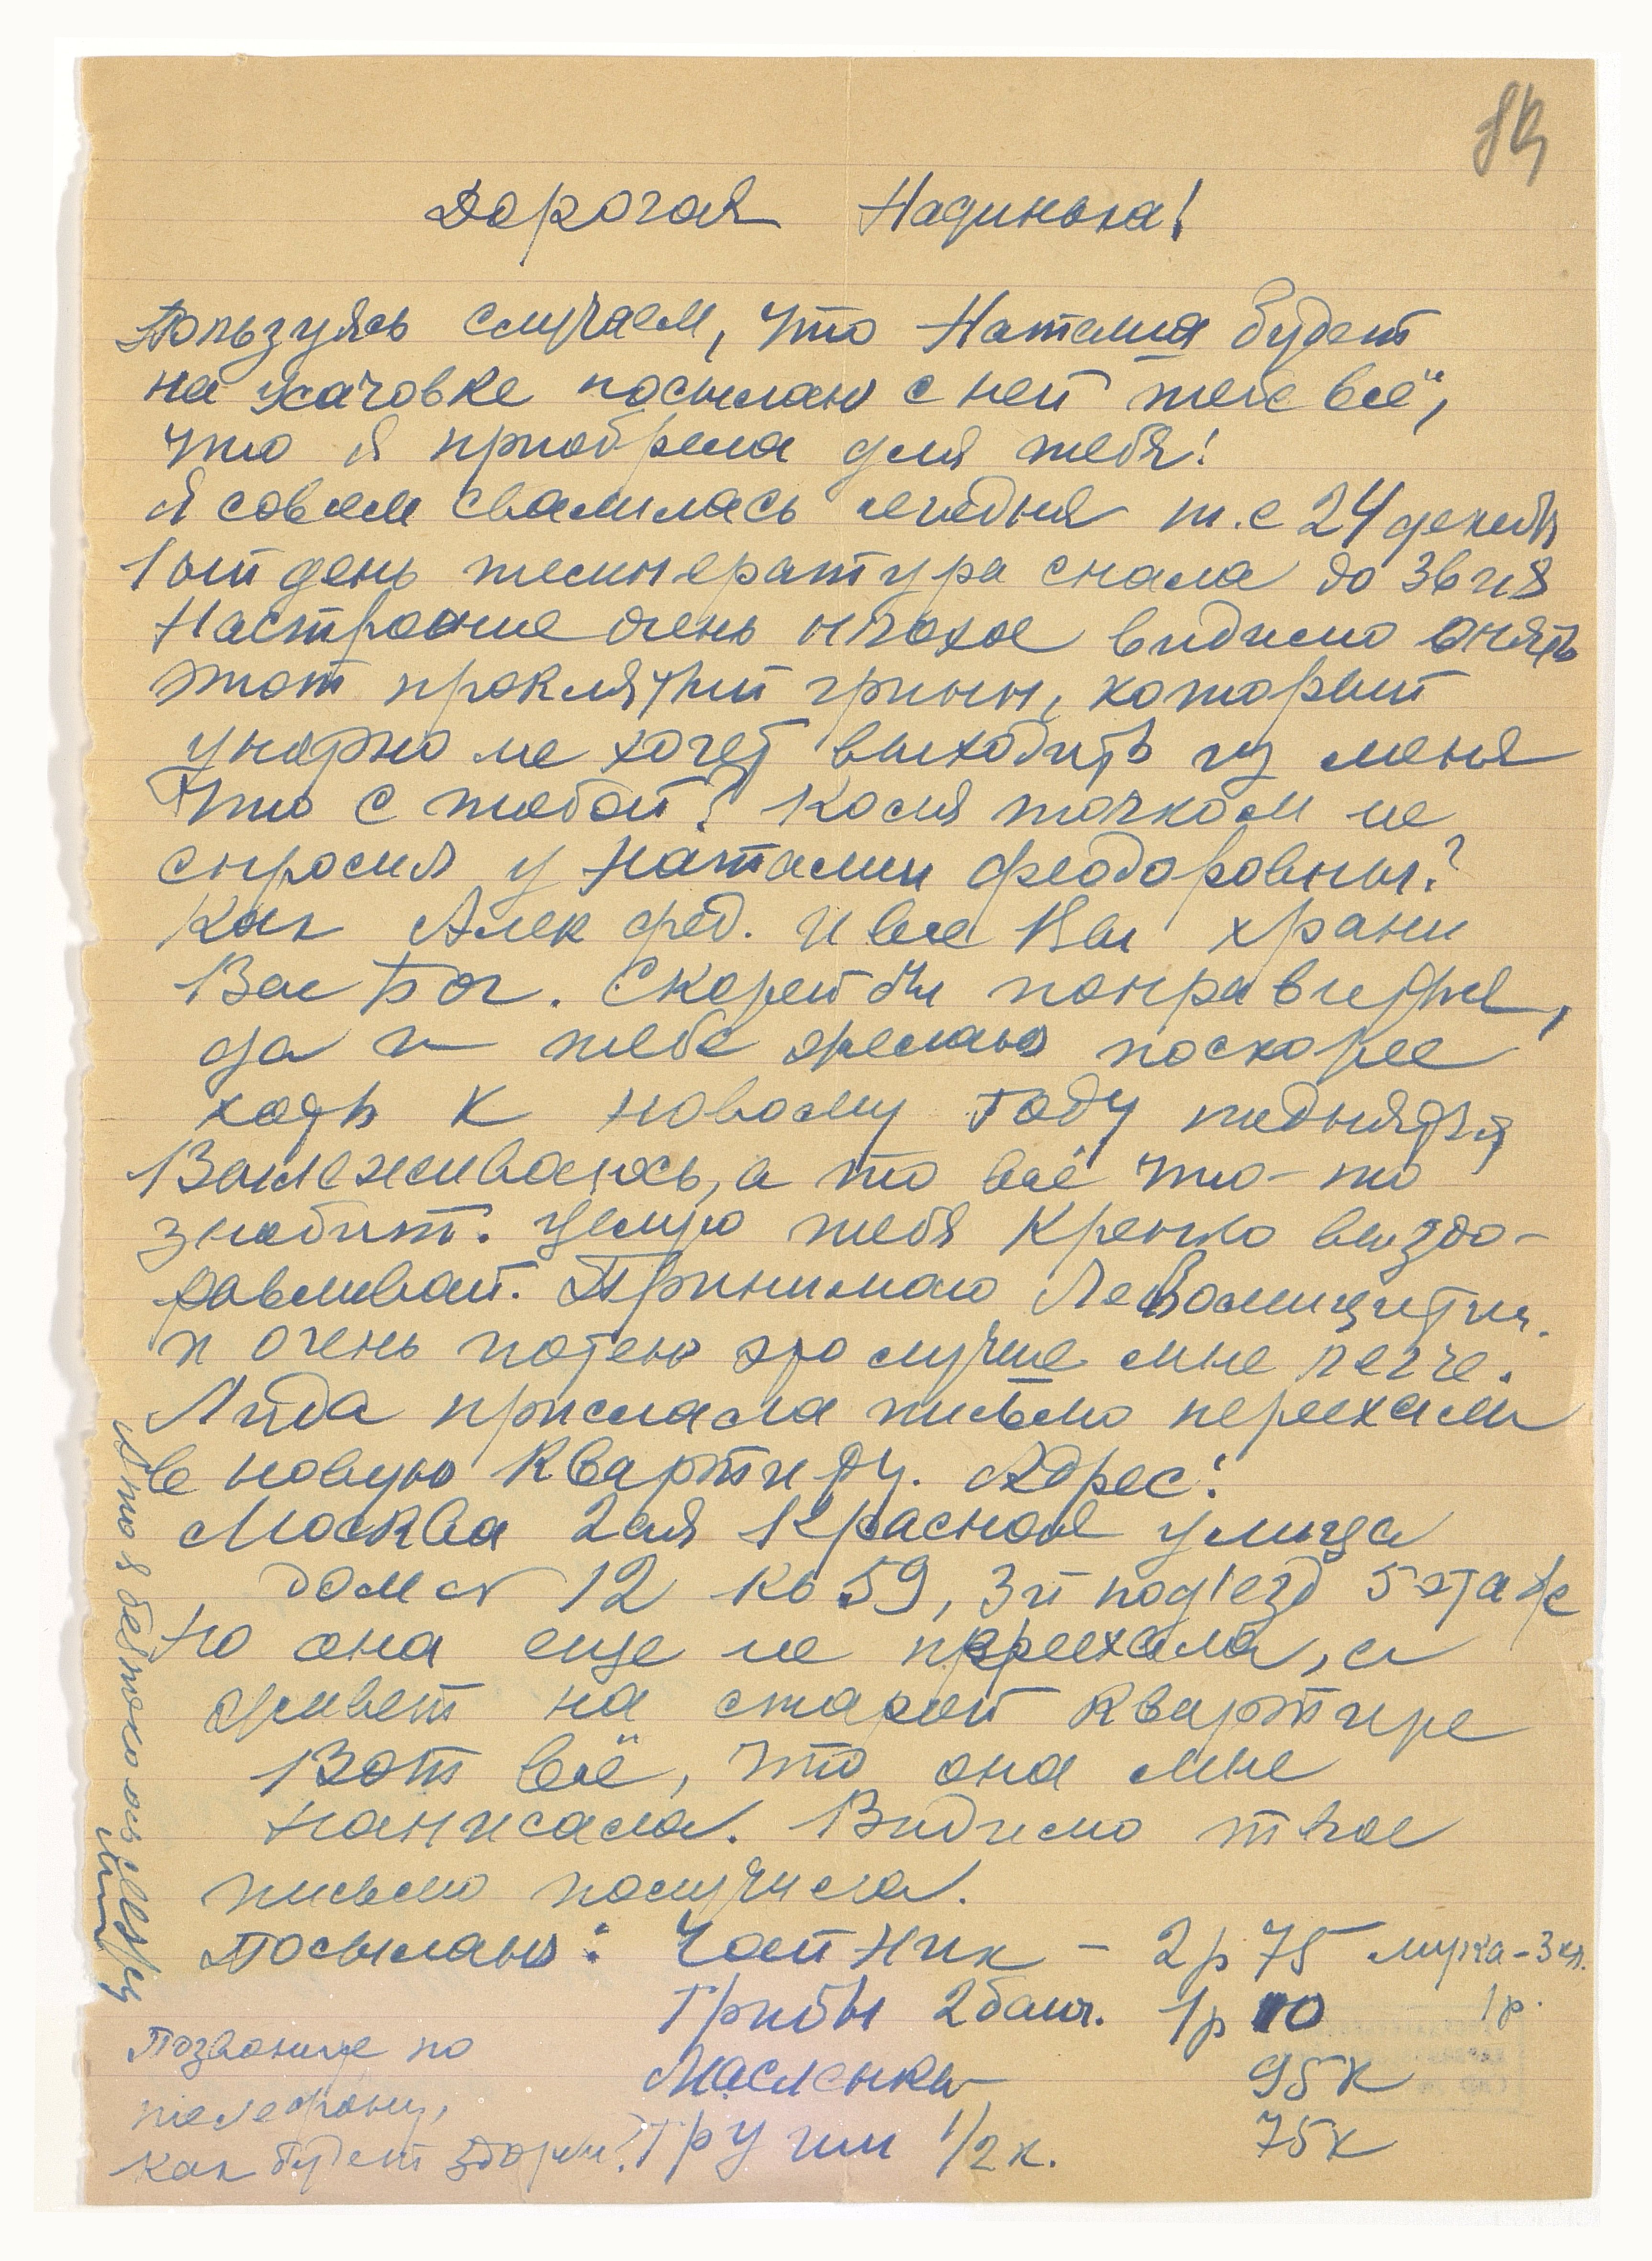 Дорогая Надинька!
Пользуясь случаем, что Наталия будет
на Качовке посылаю с ней тебе всё,
что я приобрела для тебя!
Я совсем свалилась сегодня т.е 24 декабр
1ый день температура спала до 36 и 8
Настроение очень плохое видимо опять
этот проклятый грипп, который
упорно не хочет выходить из меня
Что с тобой? Коля толком не
спросил у Наталии Феодоровны?
Как Алек фед. и все Вы храни
Вас Бог. Скорей бы поправиться,
да и тебе желаю поскорее
хоть к новому году подняться
Вылеживаюсь, а то всё что-то
знобит. Целую тебя крепко выздо-
равливай. Принимаю Левомицитин.
и очень потею это лучше мне легче.
Лида прислала письмо переехали
в новую квартиру. Адрес:
Москва 2ая Красная улица
дом 12 кв 59, 3й под'езд 5 этаж
Но она еще не переехала, а
живет на старой квартире
Вот всё, что она мне
написала. Видимо твое
письмо получила.
Посылаю: Чайник - 2р 75 мука - 3 кл.
Грибы 2 банч. 1р 10 1р.
Масленка 95к
Груши 1/2 к. 75к
Позвоните по
телефону,
как будет здоров?